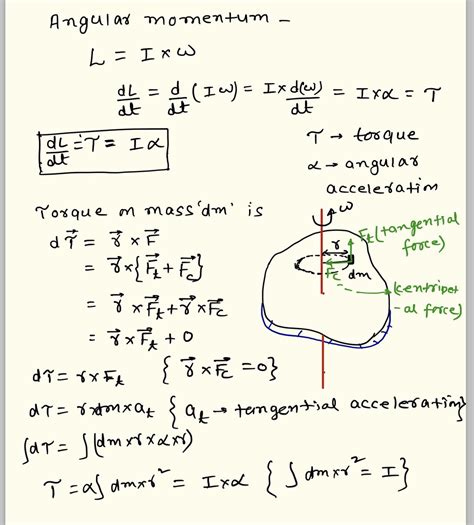 Angular momentum -
L = I × ω
dL/dt = d/dt (Iω) = I × d(ω)/dt = I×α = τ
dL/dt = τ = Iα
τ → torque
α → angular
acceleration
Torque on mass 'dm' is
dτ⃗ = r⃗ × F⃗
= r⃗ × {F⃗t + F⃗c}
= r⃗ × F⃗t + r⃗ × F⃗c
= r⃗ × F⃗t + 0
dτ = r × Ft { r⃗ × F⃗c = 0}
dτ = r × dm × at { at → tangential acceleration}
∫dτ = ∫(dm × r × α × r)
τ = α∫dm × r² = I×α { ∫dm × r² = I}
ω
Ft (tangential
force)
r
Fc
dm
(centripet
-al force)